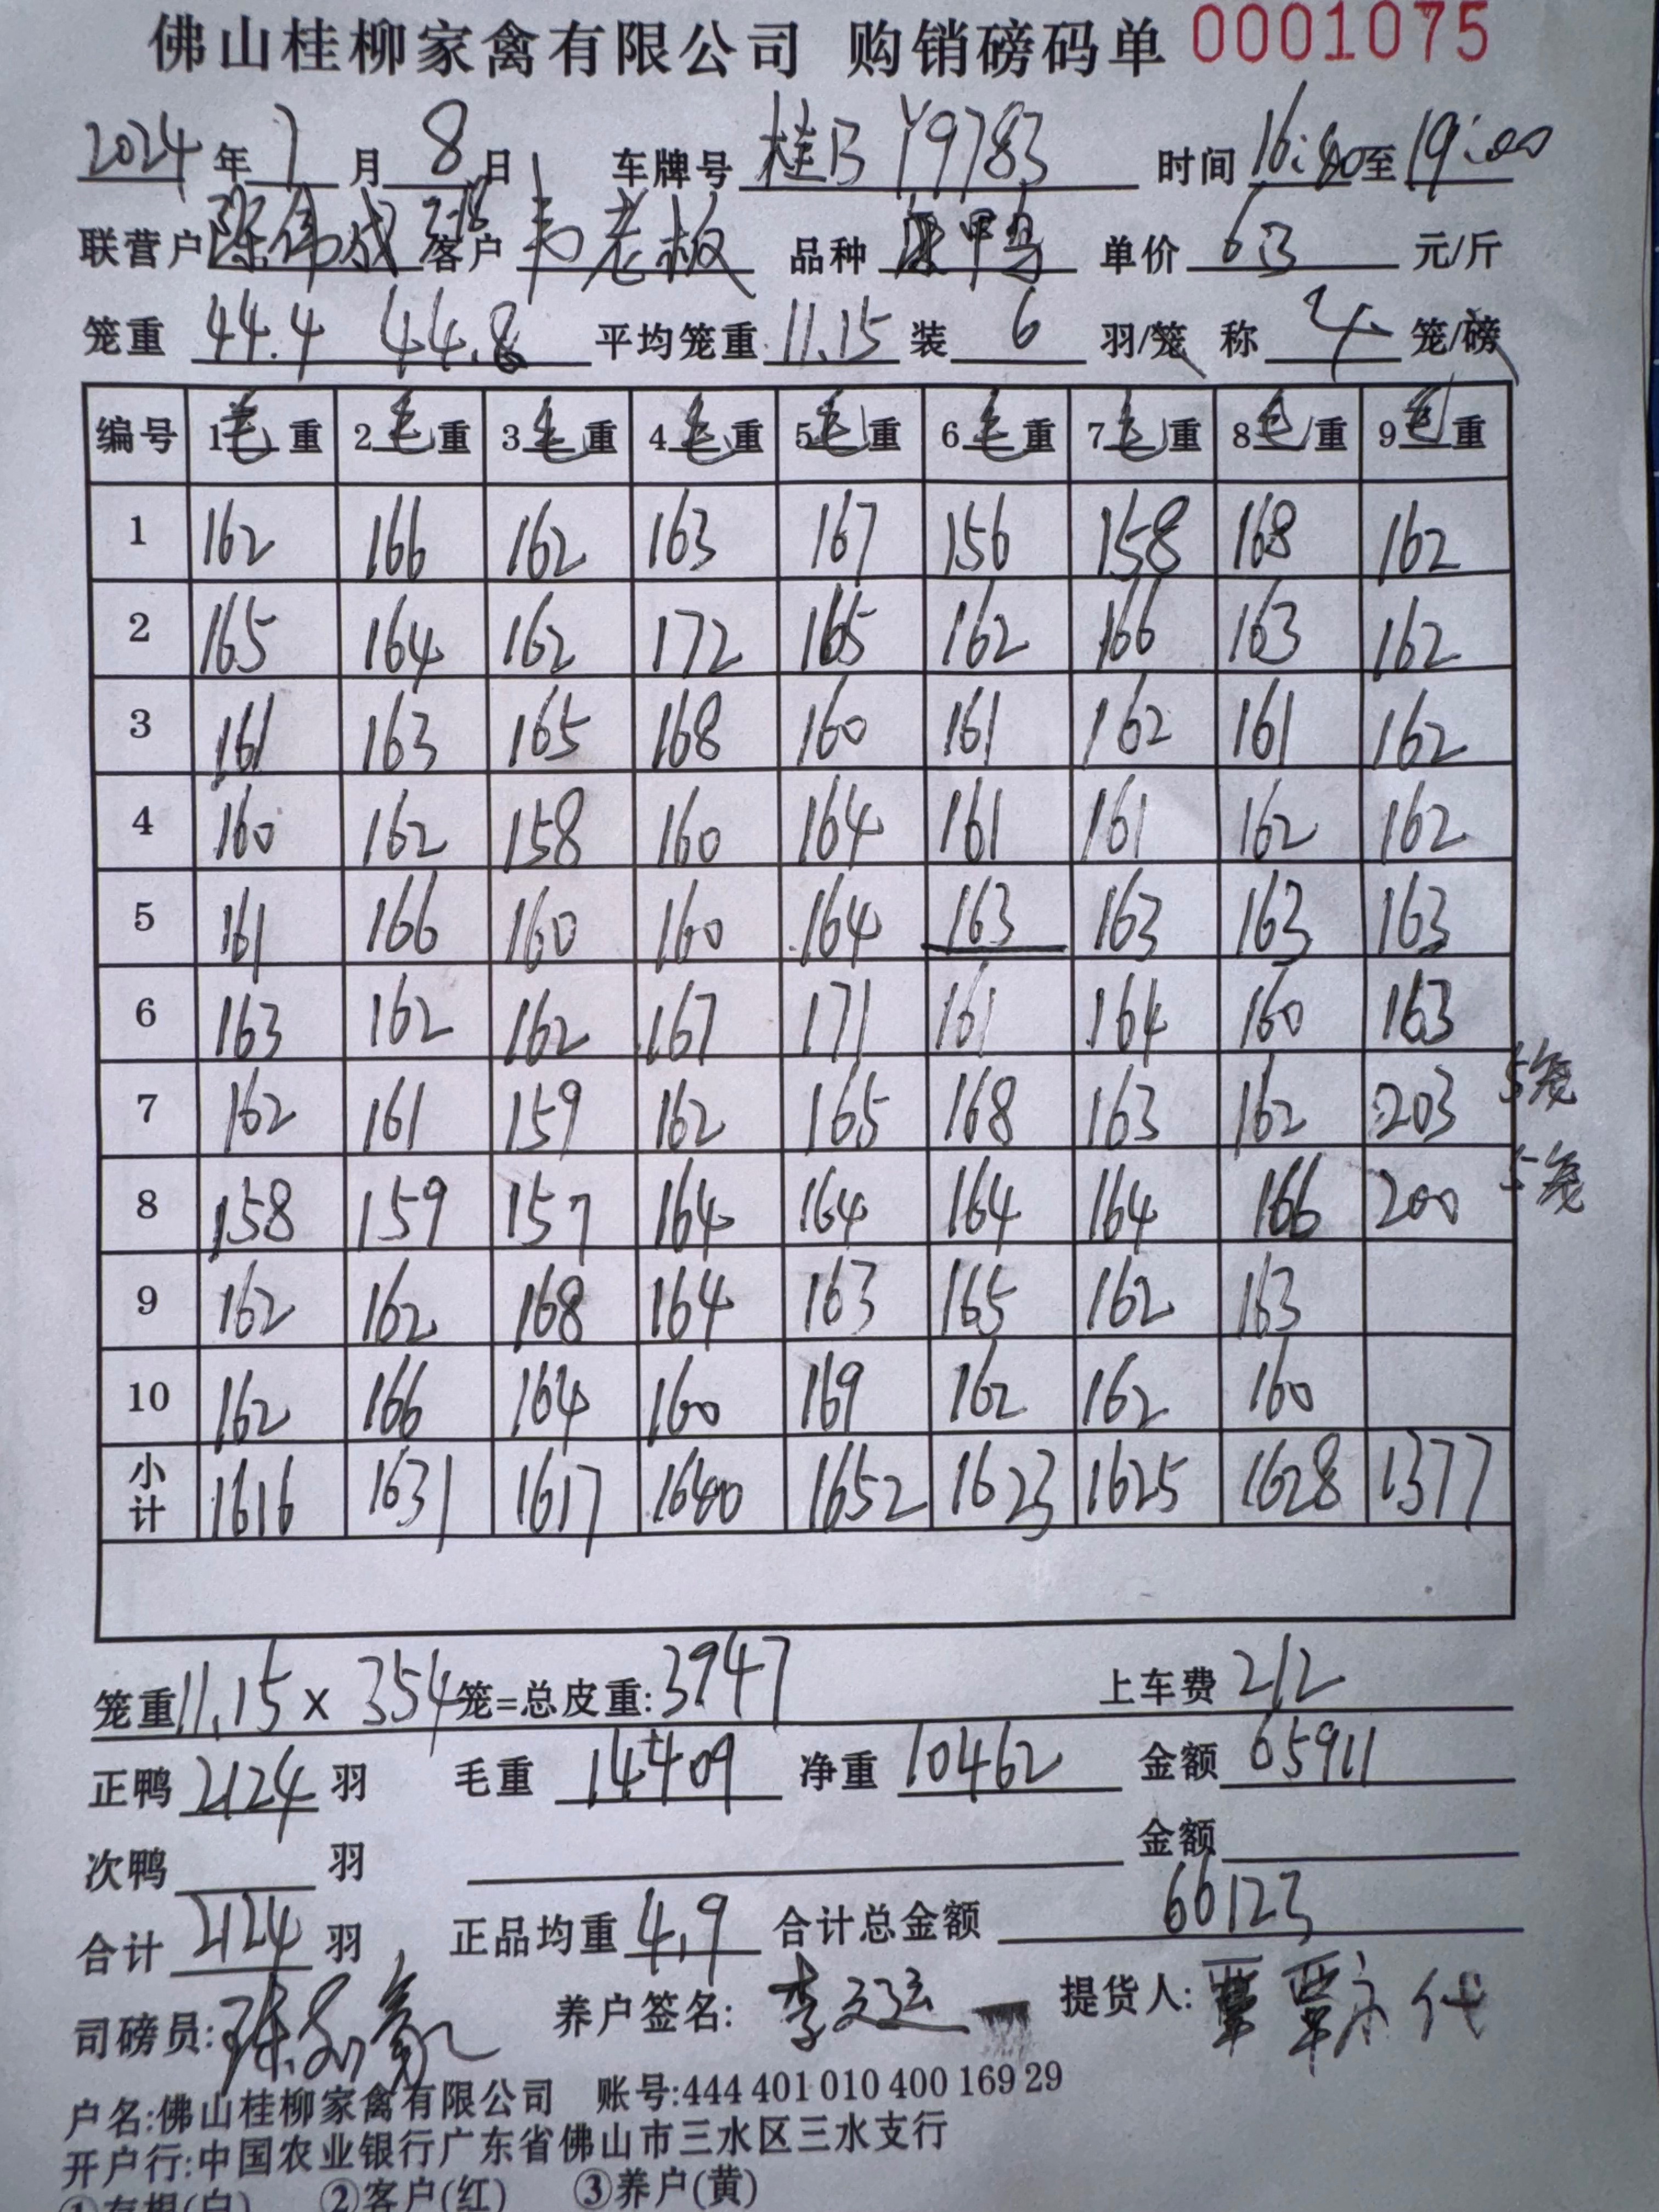 佛山桂柳家禽有限公司 购销磅码单 0001075
2024年7月8日 车牌号 桂B Y9783 时间 16:40至19:00
联营户 陈伟成 客户 韦老板 品种 鸭 单价 6.3 元/斤
笼重 44.4 44.8 平均笼重 11.15 装 6 羽/笼 称 4 笼/磅
编号 1毛重 2毛重 3毛重 4毛重 5毛重 6毛重 7毛重 8毛重 9毛重
1 162 166 162 163 167 156 158 168 162
2 165 164 162 172 165 162 166 163 162
3 161 163 165 168 160 161 162 161 162
4 160 162 158 160 164 161 161 162 162
5 161 166 160 160 164 163 163 163 163
6 163 162 162 167 171 161 164 160 163
7 162 161 159 162 165 168 163 162 203 5笼
8 158 159 157 164 164 164 164 166 200 5笼
9 162 162 168 164 163 165 162 163
10 162 166 164 160 169 162 162 160
小计 1616 1631 1617 1640 1652 1623 1625 1628 1377
笼重 11.15 x 354 笼=总皮重: 3947 上车费 212
正鸭 2124 羽 毛重 14409 净重 10462 金额 65911
次鸭 羽 金额
合计 2124 羽 正品均重 4.9 合计总金额 66123
司磅员: 养户签名: 李 提货人: 覃 代
户名:佛山桂柳家禽有限公司 账号:444 401 010 400 169 29
开户行:中国农业银行广东省佛山市三水区三水支行
①存根(白) ②客户(红) ③养户(黄)